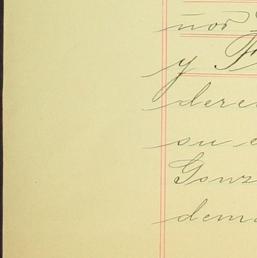 ñor
y F
derec
su e
Gonz
dema